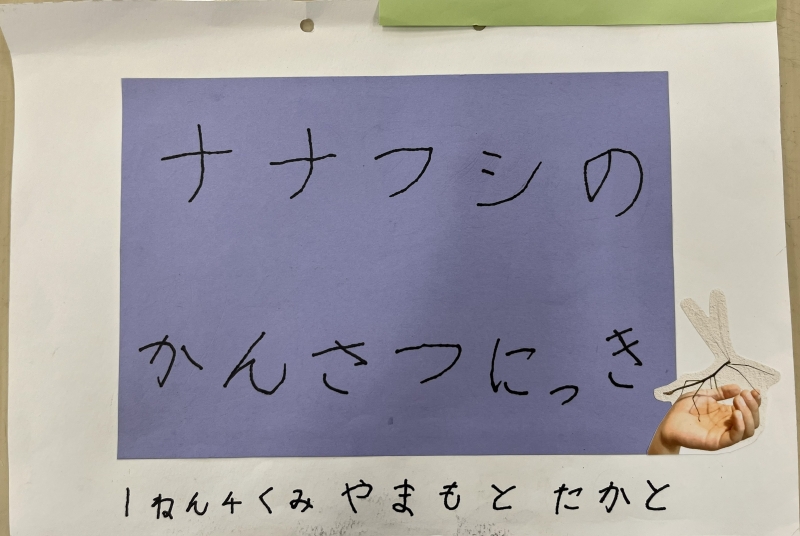 ナナフシの
かんさつにっき
1ねん4くみ やまもと たかと